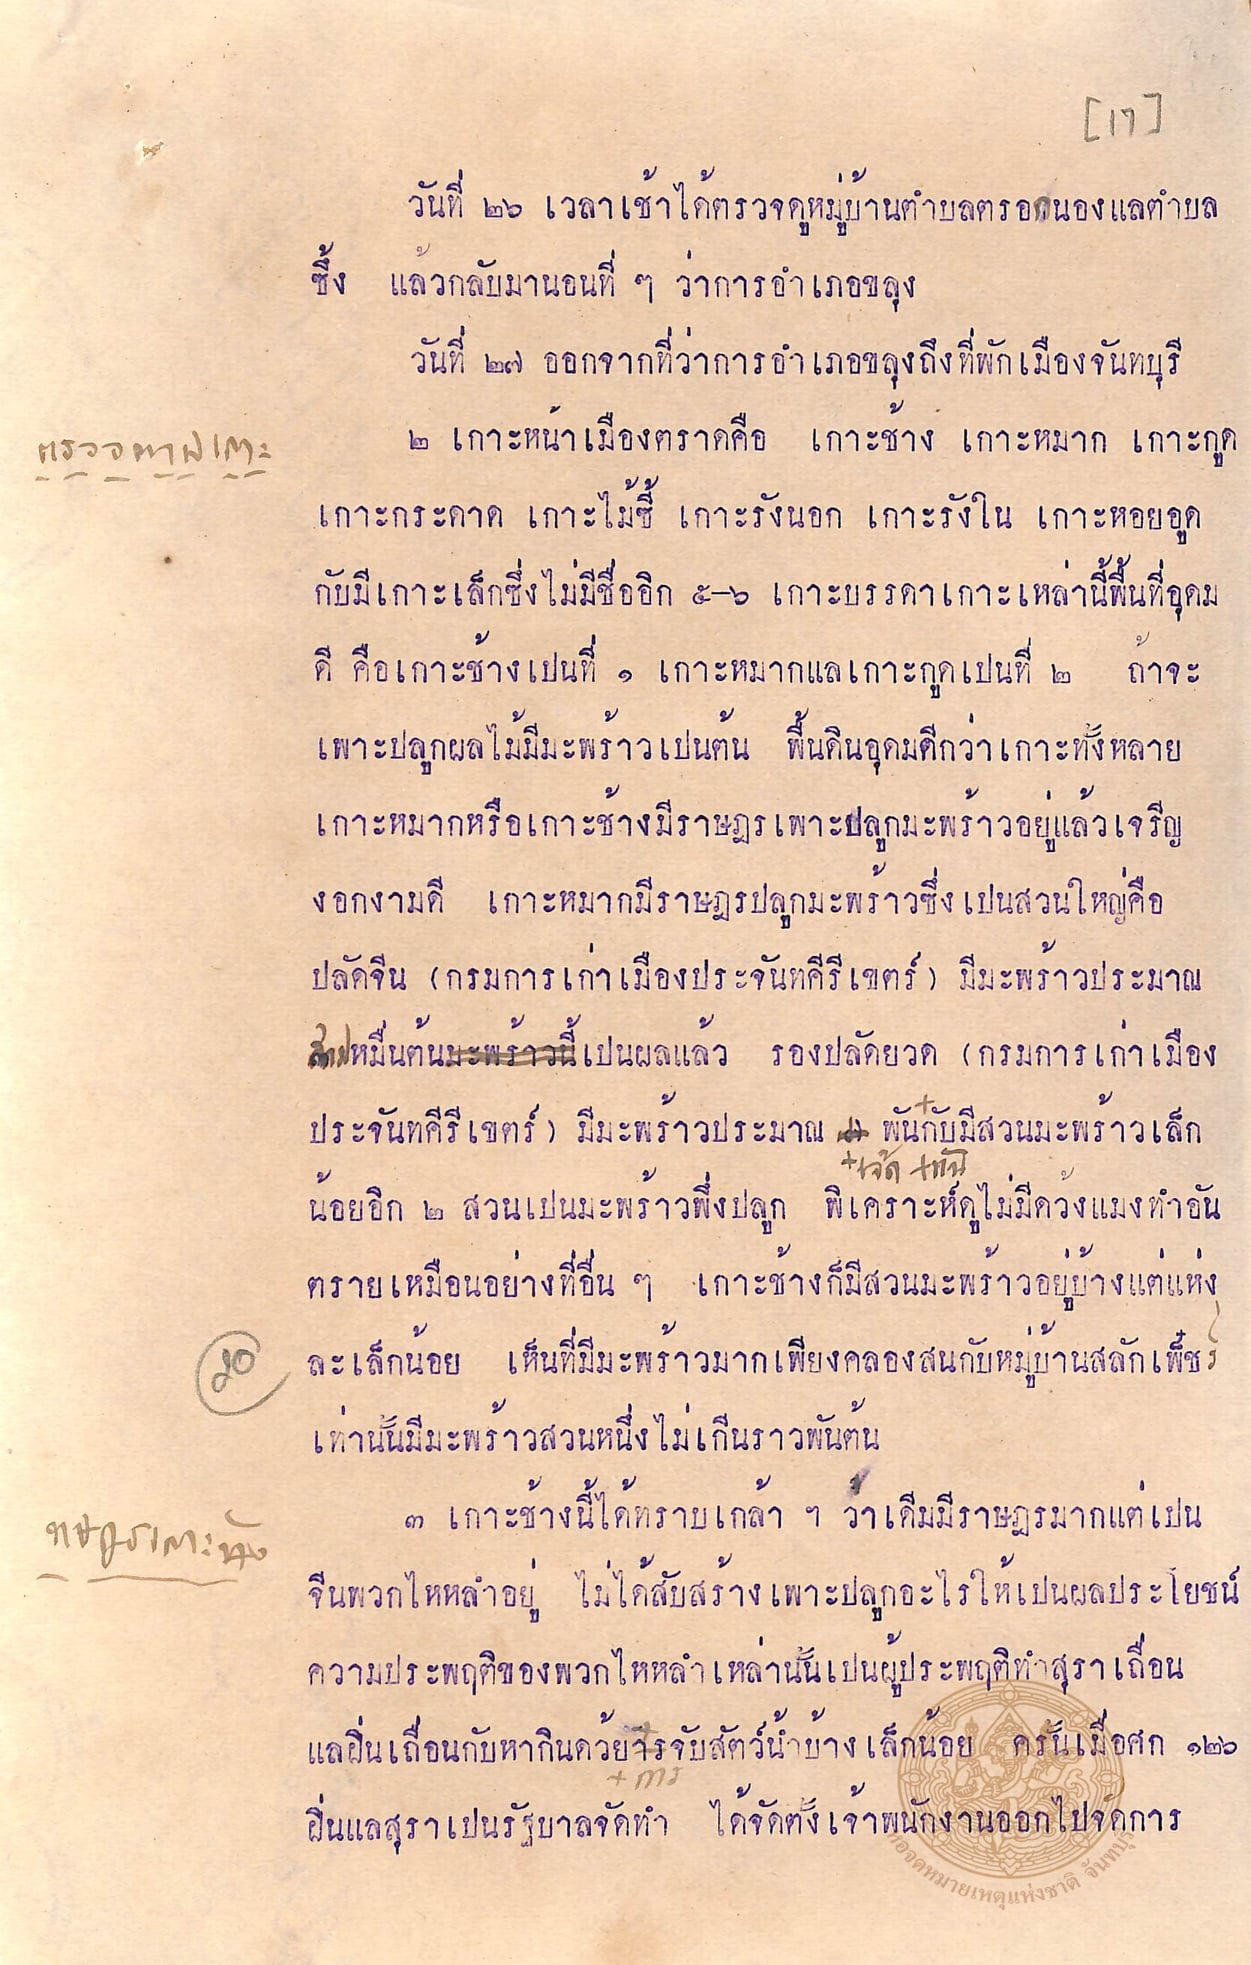 [๑๗]
วันที่ ๒๖ เวลาเช้าได้ตรวจดูหมู่บ้านตำบลตรอกนองแลตำบล
ซึ้ง แล้วกลับมานอนที่ ๆ ว่าการอำเภอขลุง
วันที่ ๒๗ ออกจากที่ว่าการอำเภอขลุงถึงที่พักเมืองจันทบุรี
ตรวจตามเกาะ
๒ เกาะหน้าเมืองตราดคือ เกาะช้าง เกาะหมาก เกาะกูด
เกาะกระดาด เกาะไม้ซี้ เกาะรังนอก เกาะรังใน เกาะหอยอูด
กับมีเกาะเล็กซึ่งไม่มีชื่ออีก ๕–๖ เกาะบรรดาเกาะเหล่านี้พื้นที่อุดม
ดี คือเกาะช้างเปนที่ ๑ เกาะหมากแลเกาะกูดเปนที่ ๒ ถ้าจะ
เพาะปลูกผลไม้มีมะพร้าวเปนต้น พื้นดินอุดมดีกว่าเกาะทั้งหลาย
เกาะหมากหรือเกาะช้างมีราษฎรเพาะปลูกมะพร้าวอยู่แล้วเจรีญ
งอกงามดี เกาะหมากมีราษฎรปลูกมะพร้าวซึ่งเปนสวนใหญ่คือ
ปลัดจีน (กรมการเก่าเมืองประจันทคีรีเขตร์) มีมะพร้าวประมาณ
สามหมื่นต้นมะพร้าวนี้เปนผลแล้ว รองปลัดยวด (กรมการเก่าเมือง
ประจันทคีรีเขตร์) มีมะพร้าวประมาณ พันกับมีสวนมะพร้าวเล็ก
+เจ็ด +พัน
น้อยอีก ๒ สวนเปนมะพร้าวพึ่งปลูก พิเคราะห์ดูไม่มีดว้งแมงทำอัน
ตรายเหมือนอย่างที่อื่น ๆ เกาะช้างก็มีสวนมะพร้าวอยู่บ้างแต่แห่ง
๒๐
ละเล็กน้อย เห็นที่มีมะพร้าวมากเพียงคลองสนกับหมู่บ้านสลักเพ็ชร์
เท่านั้นมีมะพร้าวสวนหนึ่งไม่เกีนราวพันต้น
๓ เกาะช้างนี้ได้ทราบเกล้า ฯ ว่าเดีมมีราษฎรมากแต่เปน
จีนพวกไหหลำอยู่ ไม่ได้สับสร้างเพาะปลูกอะไรให้เปนผลประโยชน์
ความประพฤติของพวกไหหลำเหล่านั้นเปนผู้ประพฤติทำสุราเถื่อน
แลฝิ่นเถื่อนกับหากินดว้ยารจับสัตว์น้ำบ้างเล็กน้อย ครั้นเมื่อศก ๑๒๖
+การ
ฝิ่นแลสุราเปนรัฐบาลจัดทำ ได้จัดตั้งเจ้าพนักงานออกไปจัดการ
หอจดหมายเหตุแห่งชาติ จันทบุรี